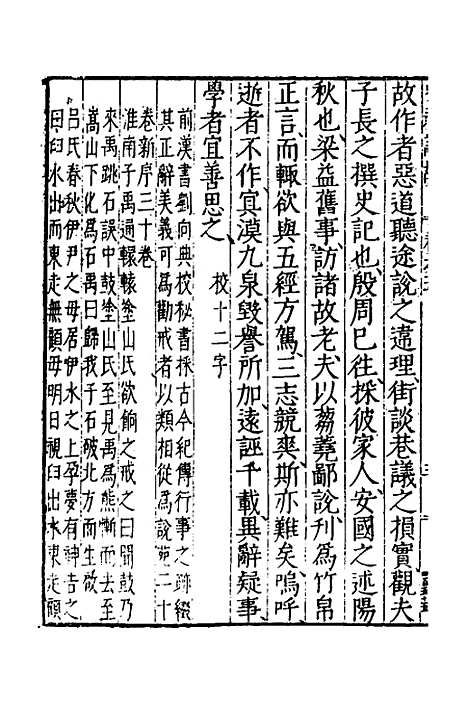 故作者惡道聽途說之違理街談巷議之損實觀夫
子長之撰史記也殷周已往採彼家人安國之述陽
秋也梁益舊事訪諸故老夫以蒭蕘鄙說刊為竹帛
正言而輙欲與五經方駕三志競爽斯亦難矣嗚呼
逝者不作冥漠九泉毀譽所加遠誣千載異辭疑事
學者宜善思之 校十二字
前漢書劉向典校秘書採古今紀傳行事之跡綴
其正辭美義可為勸戒者以類相從為說苑二十
卷新序三十卷
淮南子禹過轘轅塗山氏欲餉之戒之曰聞鼓乃
來禹跳石誤中鼓塗山氏至見禹為熊慚而去至
嵩山下化為石禹曰歸我子石破北方而生啟
呂氏春秋伊尹之母居伊水之上孕夢有神告之
曰臼水出而東走無顧毋明日視臼出水東走顧